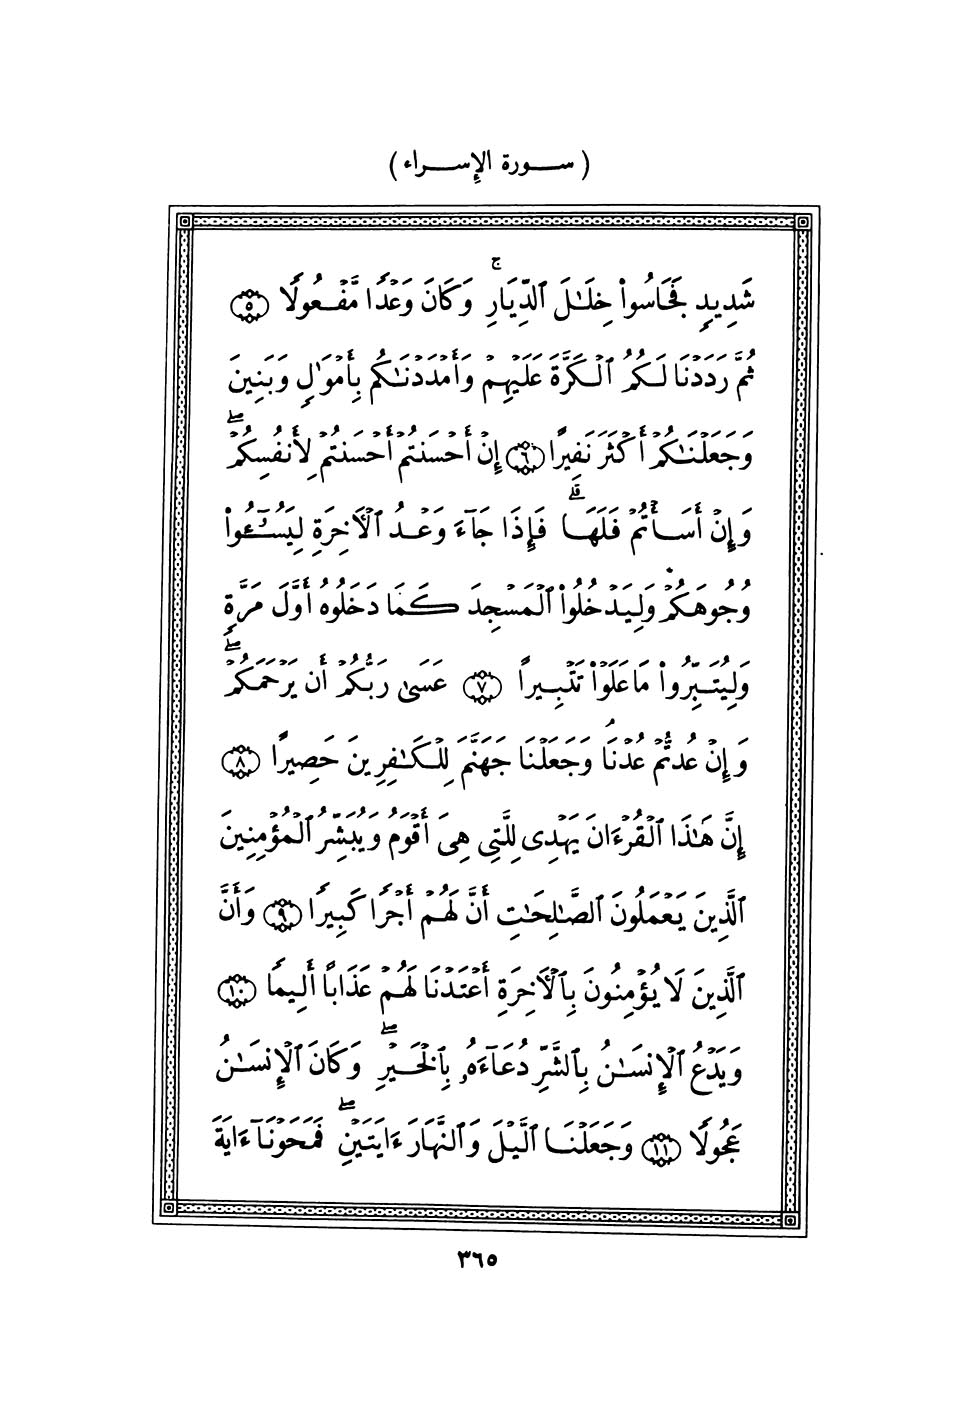 ( ســورة الإســراء )
شَدِيدٍ فَجَاسُوا۟ خِلَـٰلَ ٱلدِّيَارِ ۚ وَكَانَ وَعْدًا مَّفْعُولًا ۝٥
ثُمَّ رَدَدْنَا لَكُمُ ٱلْكَرَّةَ عَلَيْهِمْ وَأَمْدَدْنَـٰكُم بِأَمْوَٰلٍ وَبَنِينَ
وَجَعَلْنَـٰكُمْ أَكْثَرَ نَفِيرًا ۝٦ إِنْ أَحْسَنتُمْ أَحْسَنتُمْ لِأَنفُسِكُمْ ۖ
وَإِنْ أَسَأْتُمْ فَلَهَا ۚ فَإِذَا جَآءَ وَعْدُ ٱلْـَٔاخِرَةِ لِيَسُـۥٓـُٔوا۟
وُجُوهَكُمْ وَلِيَدْخُلُوا۟ ٱلْمَسْجِدَ كَمَا دَخَلُوهُ أَوَّلَ مَرَّةٍ
وَلِيُتَبِّرُوا۟ مَا عَلَوْا۟ تَتْبِيرًا ۝٧ عَسَىٰ رَبُّكُمْ أَن يَرْحَمَكُمْ ۖ
وَإِنْ عُدتُّمْ عُدْنَا ۘ وَجَعَلْنَا جَهَنَّمَ لِلْكَـٰفِرِينَ حَصِيرًا ۝٨
إِنَّ هَـٰذَا ٱلْقُرْءَانَ يَهْدِى لِلَّتِى هِىَ أَقْوَمُ وَيُبَشِّرُ ٱلْمُؤْمِنِينَ
ٱلَّذِينَ يَعْمَلُونَ ٱلصَّـٰلِحَـٰتِ أَنَّ لَهُمْ أَجْرًا كَبِيرًا ۝٩ وَأَنَّ
ٱلَّذِينَ لَا يُؤْمِنُونَ بِٱلْـَٔاخِرَةِ أَعْتَدْنَا لَهُمْ عَذَابًا أَلِيمًا ۝١٠
وَيَدْعُ ٱلْإِنسَـٰنُ بِٱلشَّرِّ دُعَآءَهُۥ بِٱلْخَيْرِ ۖ وَكَانَ ٱلْإِنسَـٰنُ
عَجُولًا ۝١١ وَجَعَلْنَا ٱلَّيْلَ وَٱلنَّهَارَ ءَايَتَيْنِ ۖ فَمَحَوْنَآ ءَايَةَ
٣٦٥